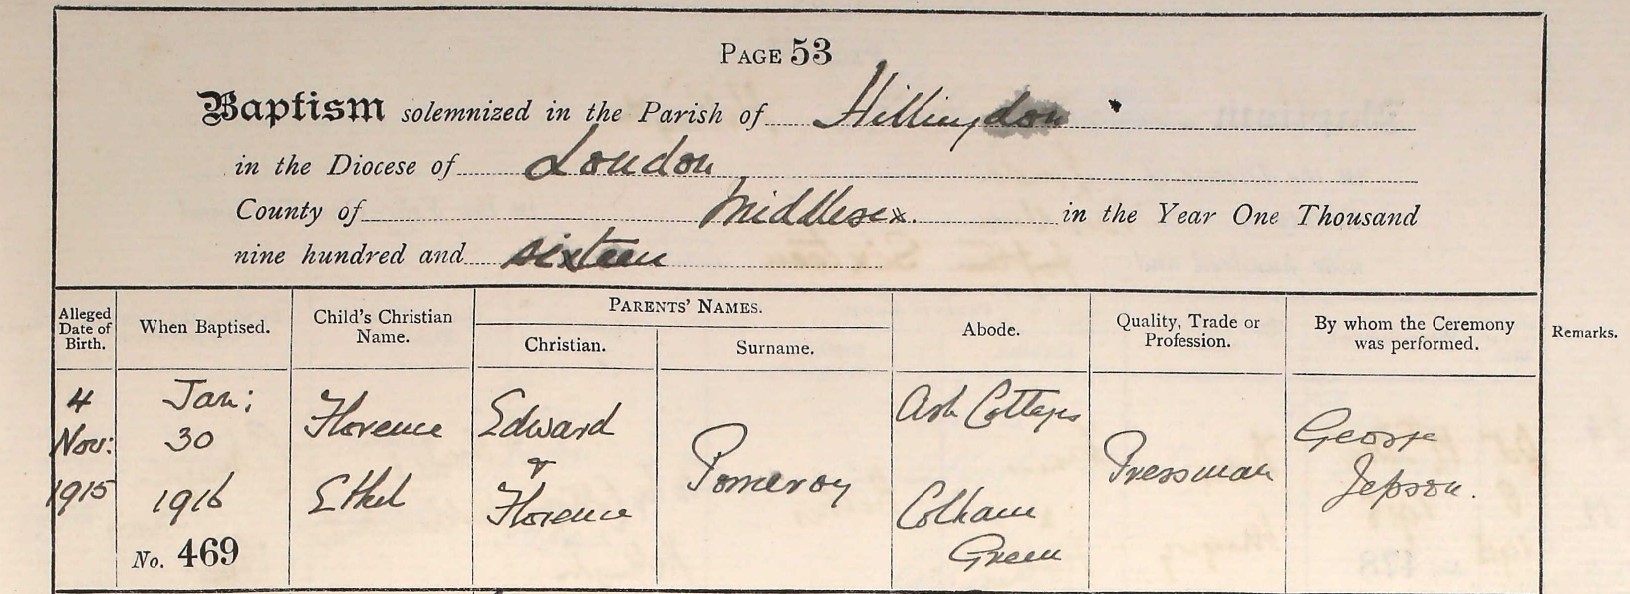 PAGE 53
Baptism solemnized in the Parish of Hillingdon
in the Diocese of London
County of Middlesex. in the Year One Thousand
nine hundred and sixteen
Alleged Date of Birth.
When Baptised.
Child's Christian Name.
PARENTS' NAMES.
Christian.
Surname.
Abode.
Quality, Trade or Profession.
By whom the Ceremony was performed.
Remarks.
4
Nov:
1915
Jan:
30
1916
No. 469
Florence
Ethel
Edward
&
Florence
Pomeroy
Ash Cottages
Colham
Green
Pressman
George
Jepson.